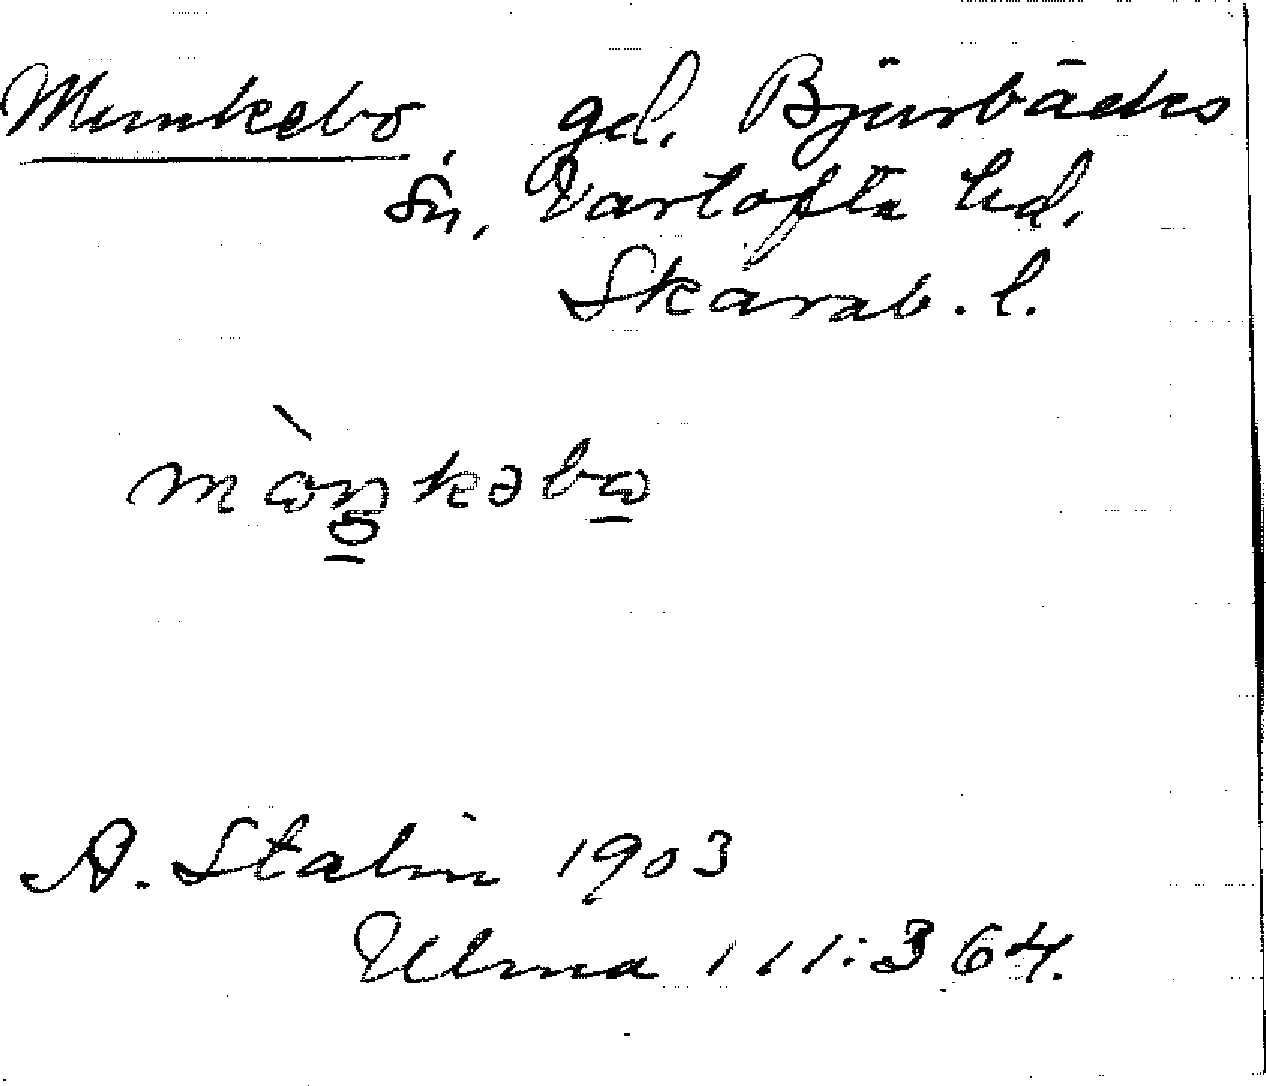 Munkebo, gd. Bjurbäcks
sn, Vartofta hd,
Skarab. l.
mòŋkəbo
A. Stalin 1903
Ulma 111:364.